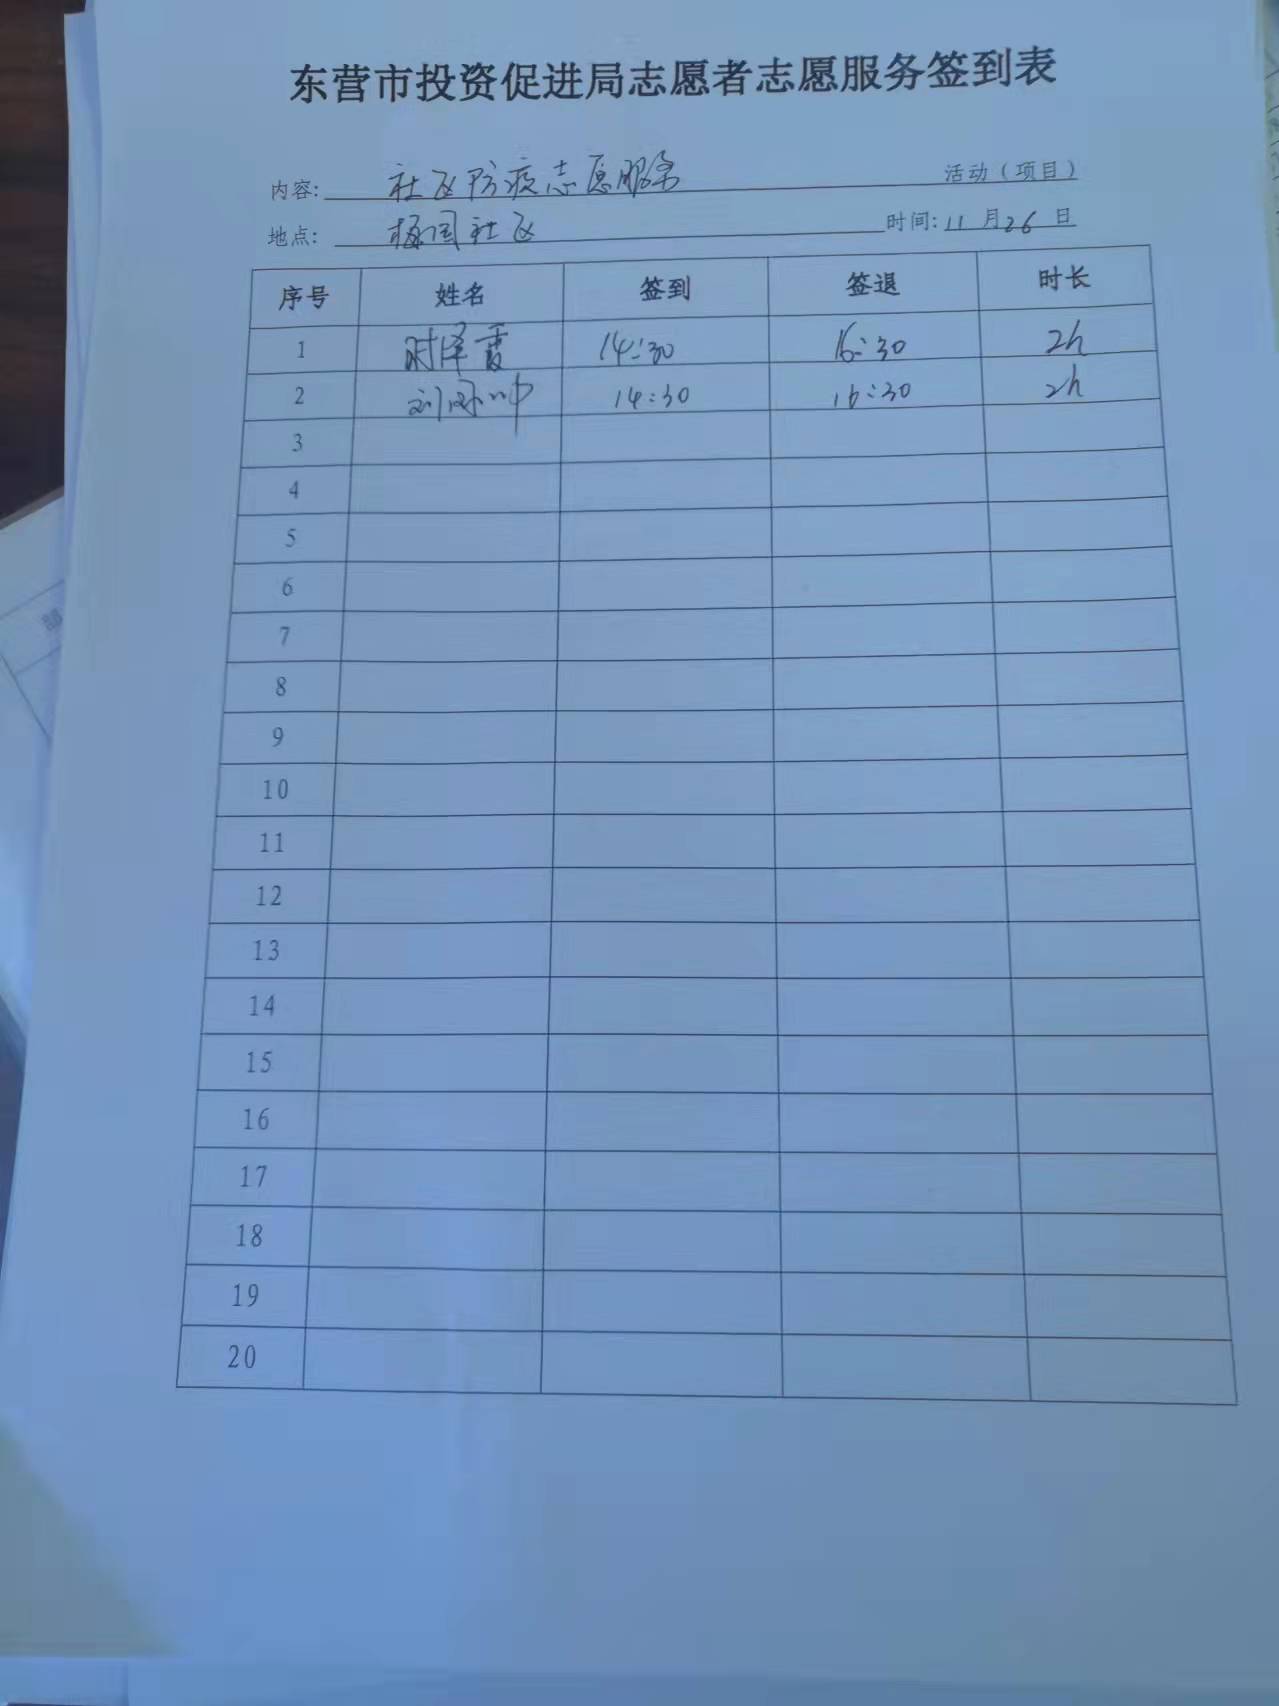 东营市投资促进局志愿者志愿服务签到表
内容: 社区防疫志愿服务 活动（项目）
地点: 梅园社区 时间: 11月26日
序号 姓名 签到 签退 时长
1 时泽霞 14:30 16:30 2h
2 刘 14:30 16:30 2h
3
4
5
6
7
8
9
10
11
12
13
14
15
16
17
18
19
20